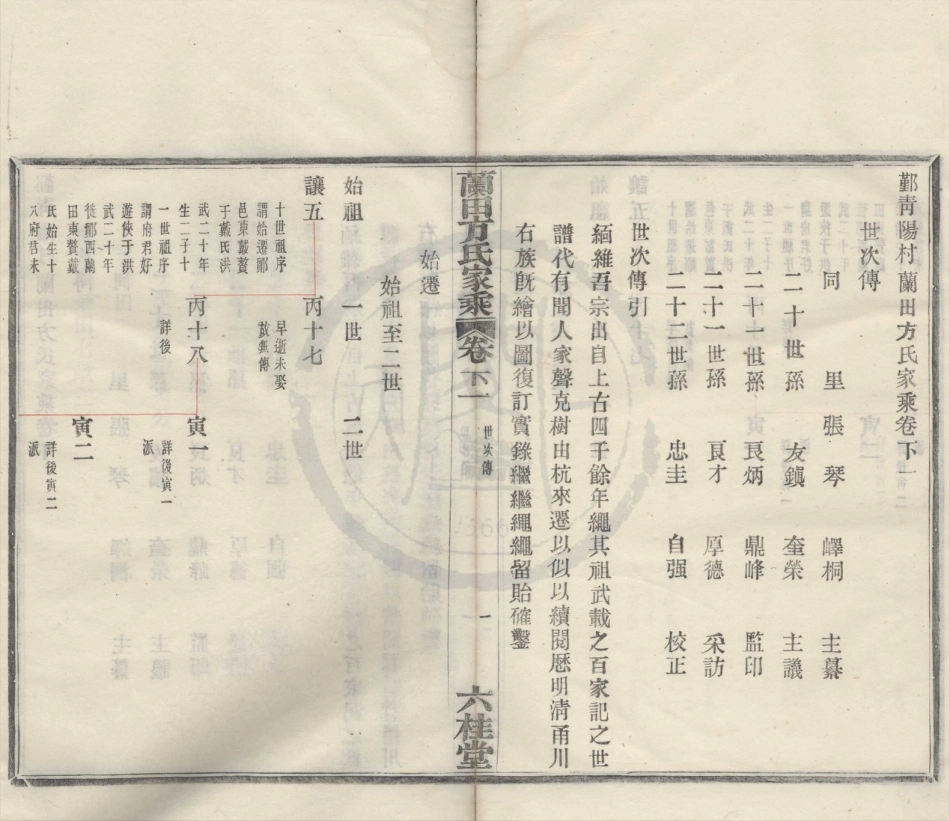 鄞靑陽村蘭田方氏家乘卷下一
世次傳
同里張琴 嶧桐 主纂
二十世孫 友鎭 奎榮 主議
二十一世孫 艮炳 鼎峰 監印
二十一世孫 艮才 厚德 采訪
二十二世孫 忠圭 自强 校正
世次傳引
緬維吾宗出自上古四千餘年繩其祖武載之百家記之世
譜代有聞人家聲克樹由杭來遷以似以續閱歷明淸甬川
右族旣繪以圖復訂實錄繼繼繩繩留貽確鑿
蘭田方氏家乘 卷下一 世次傳 一 六桂堂
始遷
始祖至二世
始祖 一世 二世
讓五 丙十七
早逝未娶
故無傳
十世祖序
謂始遷鄞
邑東戴贅
于戴氏洪
武二十年
生二子十
一世祖序
謂府君好
遊俠于洪
武二十年
徙鄞西蘭
田東贅戴
氏始生十
八府君未
丙十八 詳後
寅一
詳後寅一
派
寅二
詳後寅二
派